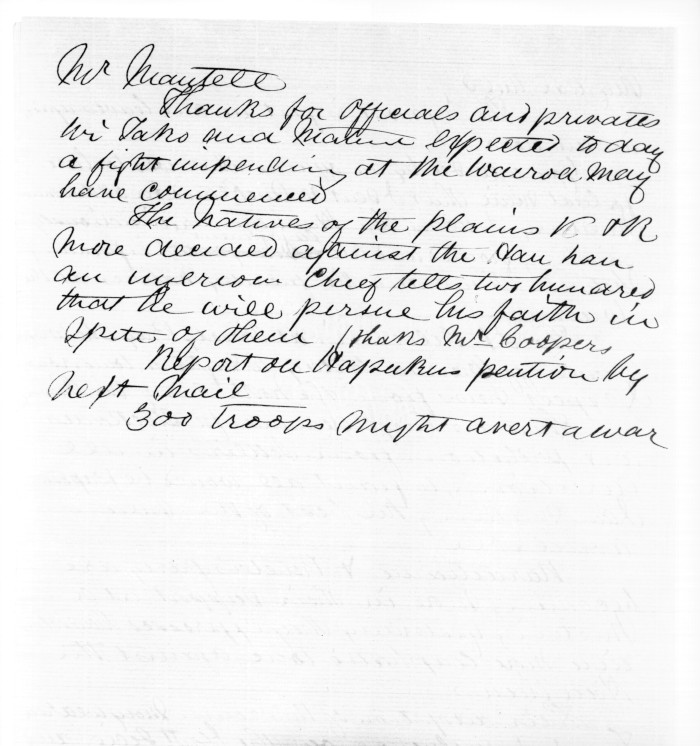 Mr Mantell
Thanks for officials and privates
Wi Tako and Matene expected to day
a fight impending at the Wairoa May
have commenced
The Natives of the plains K & R
more decided against the Hau hau
an Chief tells two hundred
that he will persue his faith in
spite of them (thats Mr Coopers
Report on Hapukus petition by
Next Mail
300 Troops Might avert a war